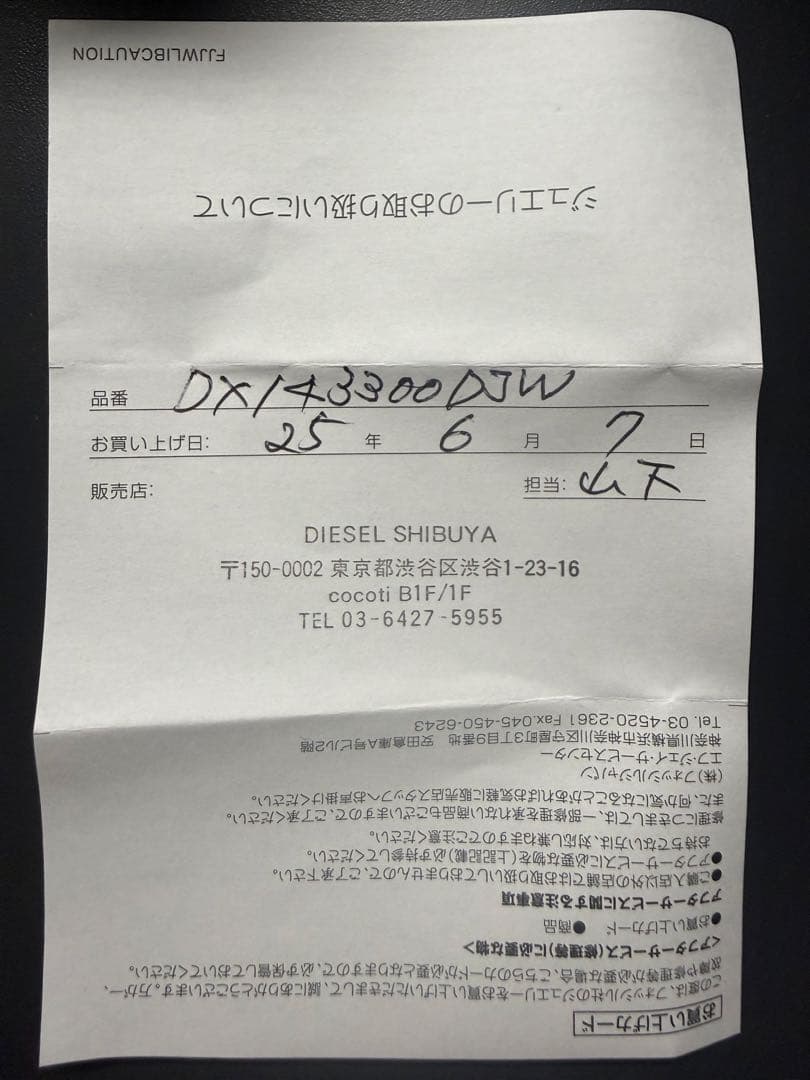 FJJWLIBCAUTION
ジュエリーのお取り扱いについて
品番 DX143300DJW
お買い上げ日: 25 年 6 月 7 日
販売店: 担当: 山下
DIESEL SHIBUYA
〒150-0002 東京都渋谷区渋谷1-23-16
cocoti B1F/1F
TEL 03-6427-5955
お買い上げカード
この度は、フォッシル社のジュエリーをお買い上げいただきまして、誠にありがとうございます。万が一、
故障や修理等が必要な場合、こちらのカードが必要となりますので、必ず保管しておいてください。
<アフターサービス(修理等)に必要な物>
●お買い上げカード ●商品
アフターサービスに関する注意事項
●ご購入店以外の店舗ではお取り扱いしておりませんので、ご了承下さい。
●アフターサービスに必要な物を(上記記載)必ず持参してください。
お持ちでない方は、対応し兼ねますのでご注意ください。
修理につきましては、一部修理を承れない商品もございますので、ご了承ください。
また、何か気になることがあればお気軽に販売店スタッフへお声掛けください。
(株)フォッシルジャパン
エフ・ジェイ・サービスセンター
神奈川県横浜市神奈川区守屋町3丁目9番地 安田倉庫A号ビル2階
Tel. 03-4520-2361 Fax.045-450-6243